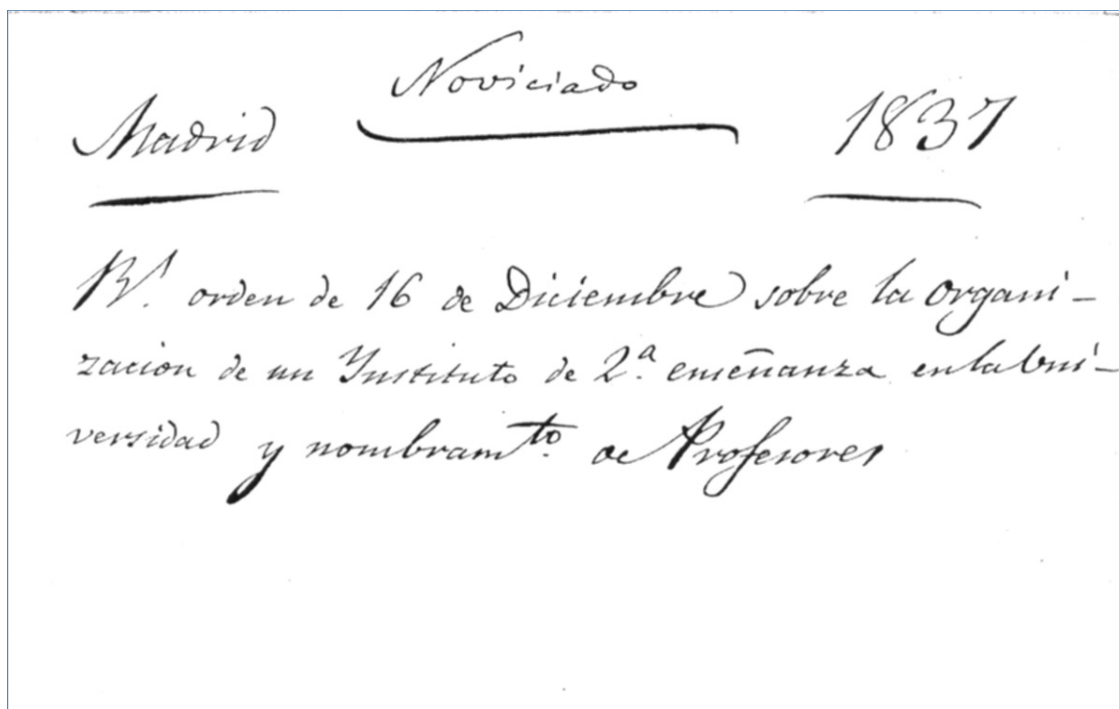 Noviciado
Madrid 1837
Rl. orden de 16 de Diciembre sobre la organi-
zacion de un Instituto de 2.ª enseñanza en la Uni-
versidad y nombramto. de Profesores